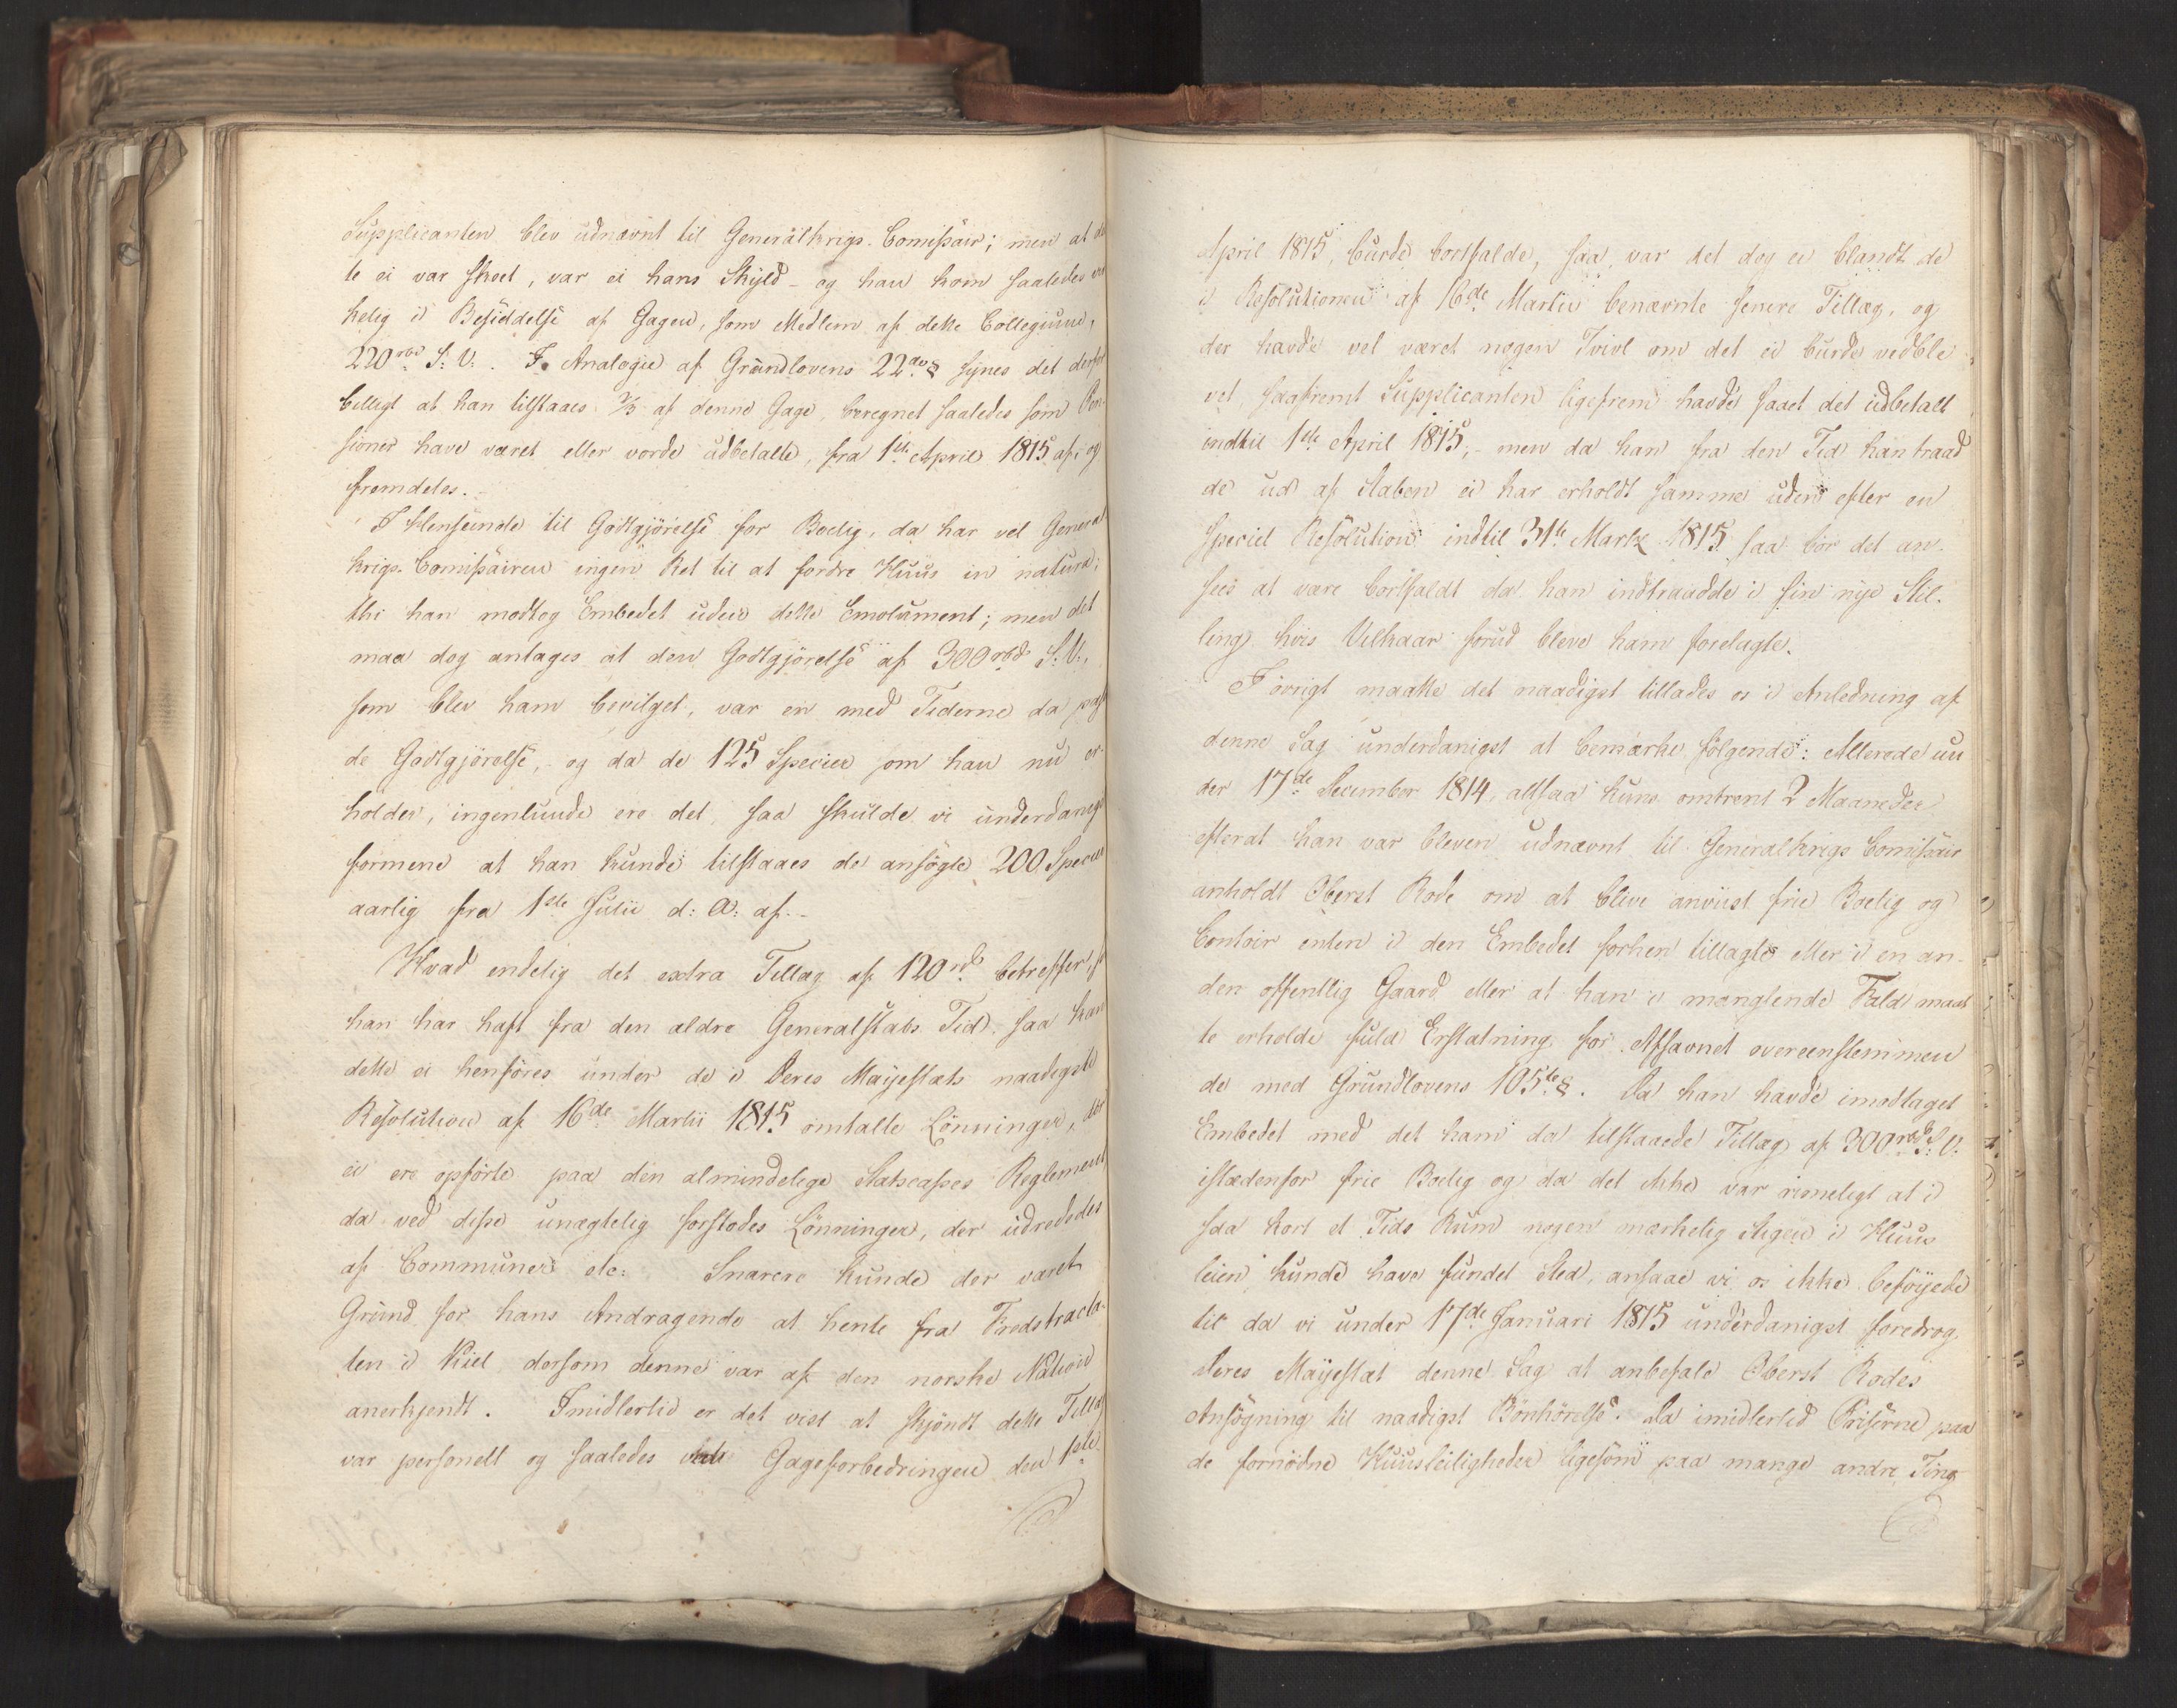 Supplicanten blev udnævnt til Generalkrigs-Comissair; men at det
te ei var skeet, var ei hans Skyld - og han kom saaledes
kelig i Besiddelse af Gagen, som Medlem af dette Collegium,
220 rbd S: V:. I Analogie af Grundlovens 22de § synes det derfor
billigt at han tilstaaes 2/3 af denne Gage, beregnet saaledes som Pen-
sioner have været eller vorde udbetalte, fra 1ste April 1815 af og
fremdeles.
I Henseende til Godtgjörelse for Boelig, da har vel General
krigs-Comissairen ingen Ret til at fordre Huus in natura;
thi han modtog Embedet uden dette Emolument; men det
maa dog antages at den Godtgjörelse af 300 rbd S: V:,
som blev ham bevilget, var en med Tiderne da passen
de Godtgjörelse, - og da de 125 Species som han nu er-
holder, ingenlunde ere det, saa skulde vi underdanigst
formene at han kunde tilstaaes de ansögte 200 Species
aarlig fra 1ste Julii d: A: af. -
Hvad endelig det extra Tillæg af 120 rd betreffer,
han har haft fra den ældre Generalstabs Tid, saa kan
dette ei henföres under de i Deres Majestæts naadigste
Resolution af 16de Martii 1815 omtalte Lönninger, der
ei ere opförte paa den almindelige Statscasses Reglement
da ved disse unægtelig forstodes Lönninger, der udrededes
af Communer etc: Snarere kunde der været
Grund for hans Andragende at hente fra Fredstracta-
ten i Kiel dersom denne var af den norske Nation
anerkjendt. Imidlertid er det vist at skjöndt dette Tillæg
var personelt og saaledes Gageforbedringen den 1ste
April 1815, burde bortfalde, saa var det dog ei blandt de
i Resolutionen af 16de Martii benævnte senere Tillæg, og
der havde vel været nogen Tvivl om det ei burde vedble
vet, saafremt Supplicanten ligefrem havde faaet det udbetalt
indtil 1ste April 1815, - men da han fra den Tid han traad
de ud af Staben ei har erholdt samme uden efter en
speciel Resolution indtil 31te Marts 1815 saa bör det an-
sees at være bortfaldt da han indtraadde i sin nye Stil-
ling hvis Vilkaar forud bleve ham forelagte.
I övrigt maatte det naadigst tillades os i Anledning af
denne Sag underdanigst at bemærke fölgende: Allerede un
der 17de December 1814, altsaa kuns omtrent 2 Maaneder
efterat han var bleven udnævnt til Generalkrigs Comissair
anholdt Oberst Rode om at blive anviist frie Boelig og
Contoir enten i den Embedet forhen tillagte eller i en an-
den offentlig Gaard eller at han i manglende Fald maat
te erholde fuld Erstatning for Afsavnet overeenstemmen
de med Grundlovens 105te §. Da han havde imodtaget
Embedet med det ham da tilstaaede Tillæg af 300 rbd S: V:
istædenfor frie Boelig og da det ikke var rimeligt at i
saa kort et Tids Rum nogen mærkelig Stigen i Huus
leien kunde have fundet Sted, ansaae vi os ikke beföyede
til da vi under 17de Januari 1815 underdanigst foredrog
Deres Majestæt denne Sag at anbefale Oberst Rodes
Ansögning til naadigst Bönhörelse. Da imidlertid Priserne paa
de fornödne Huusleiligheder ligesom paa mange andre Ting